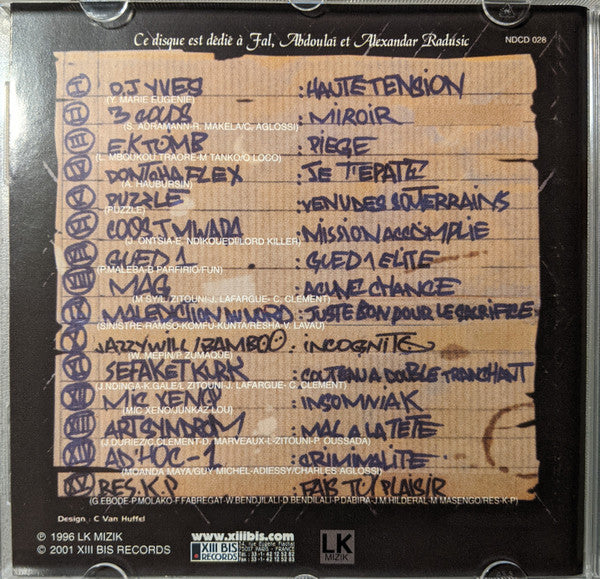 Ce disque est dédié à Fal, Abdoulaï et Alexandar Radusic
NDCD 028
I DJ YVES : HAUTE TENSION
(Y. MARIE EUGENIE)
II 3 COUPS : MIROIR
(S. ADRAMANN-R. MAKELA/C. AGLOSSI)
III E.K TOMB : PIEGE
(L. MBOUKOU TRAORE-M TANKO/O LOCO)
IV DONTCHA FLEX : JE T'EPATE
(A. HAUBURSIN)
V PUZZLE : VENU DES SOUTERRAINS
(PUZZLE)
VI COOST MWADA : MISSION ACCOMPLIE
(J. ONTSIA-E. NDIKOUEDI/LORD KILLER)
VII GUED 1 : GUED 1 ELITE
(P.MALEBA-B PARFIRIO/FUN)
VIII MAG : AUCUNE CHANCE
(M SY/L. ZITOUNI-J. LAFARGUE- C. CLEMENT)
IX MALEDICTION DU NORD : JUSTE BON POUR LE SACRIFICE
(SINISTRE-RAMSO-KOMFU-KUNTA/RESHA-V. LAVAU)
X JAZZY WILLIZAMBOO : INCOGNITO
(W. MEPIN/P ZUMAQUE)
XI SEFAKET KURK : COUTEAU A DOUBLE TRANCHANT
(J.NDINGA-K.GALE/L ZITOUNI-J LAFARGUE- C. CLEMENT)
XII MIC XENO : INSOMNIAK
(MIC XENO/JUNKAZ LOU)
XIII ART SYNDROM : MAL A LA TETE
(J.DURIEZ/C.CLEMENT-D. MARVEAUX-L-ZITOUNI-P. OUSSADA)
XIV AD'HOC-1 : CRIMINALITE
(MOANDA MAYA/GUY MICHEL-ADIESSY/CHARLES AGLOSSI)
XV RES.K.P : FAIS TON PLAISIR
(G.EBODE-P.MOLAKO-F FABREGAT-W.BENDJILALI-D.BENDILALI-P DABIRA-J.M.HILDERAL-M MASENGO/RES-K-P)
Design : C Van Huffel
℗ 1996 LK MIZIK
© 2001 XIII BIS RECORDS
www.xiiibis.com
XIII BIS RECORDS
54, rue Eugène Flachat
75017 PARIS - FRANCE
LK
MIZIK